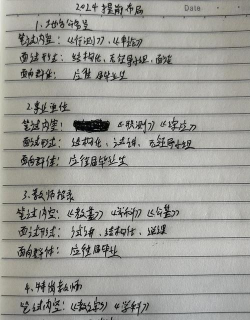 2024提前布局
Date
1.地方公务员
笔试内容:《行测》、《申论》
面试形式:结构化、无领导小组、面谈
面向群体:应往届毕业生
2.事业单位
笔试内容:《职测》《综应》
面试形式:结构化、试讲、无领导小组
面向群体:应往届毕业生
3.教师招教
笔试内容:《教基》《学科》《公基》
面试形式:试讲、结构化、说课
面向群体:应往届毕业
4.特岗教师
笔试内容:《教综》《学科》